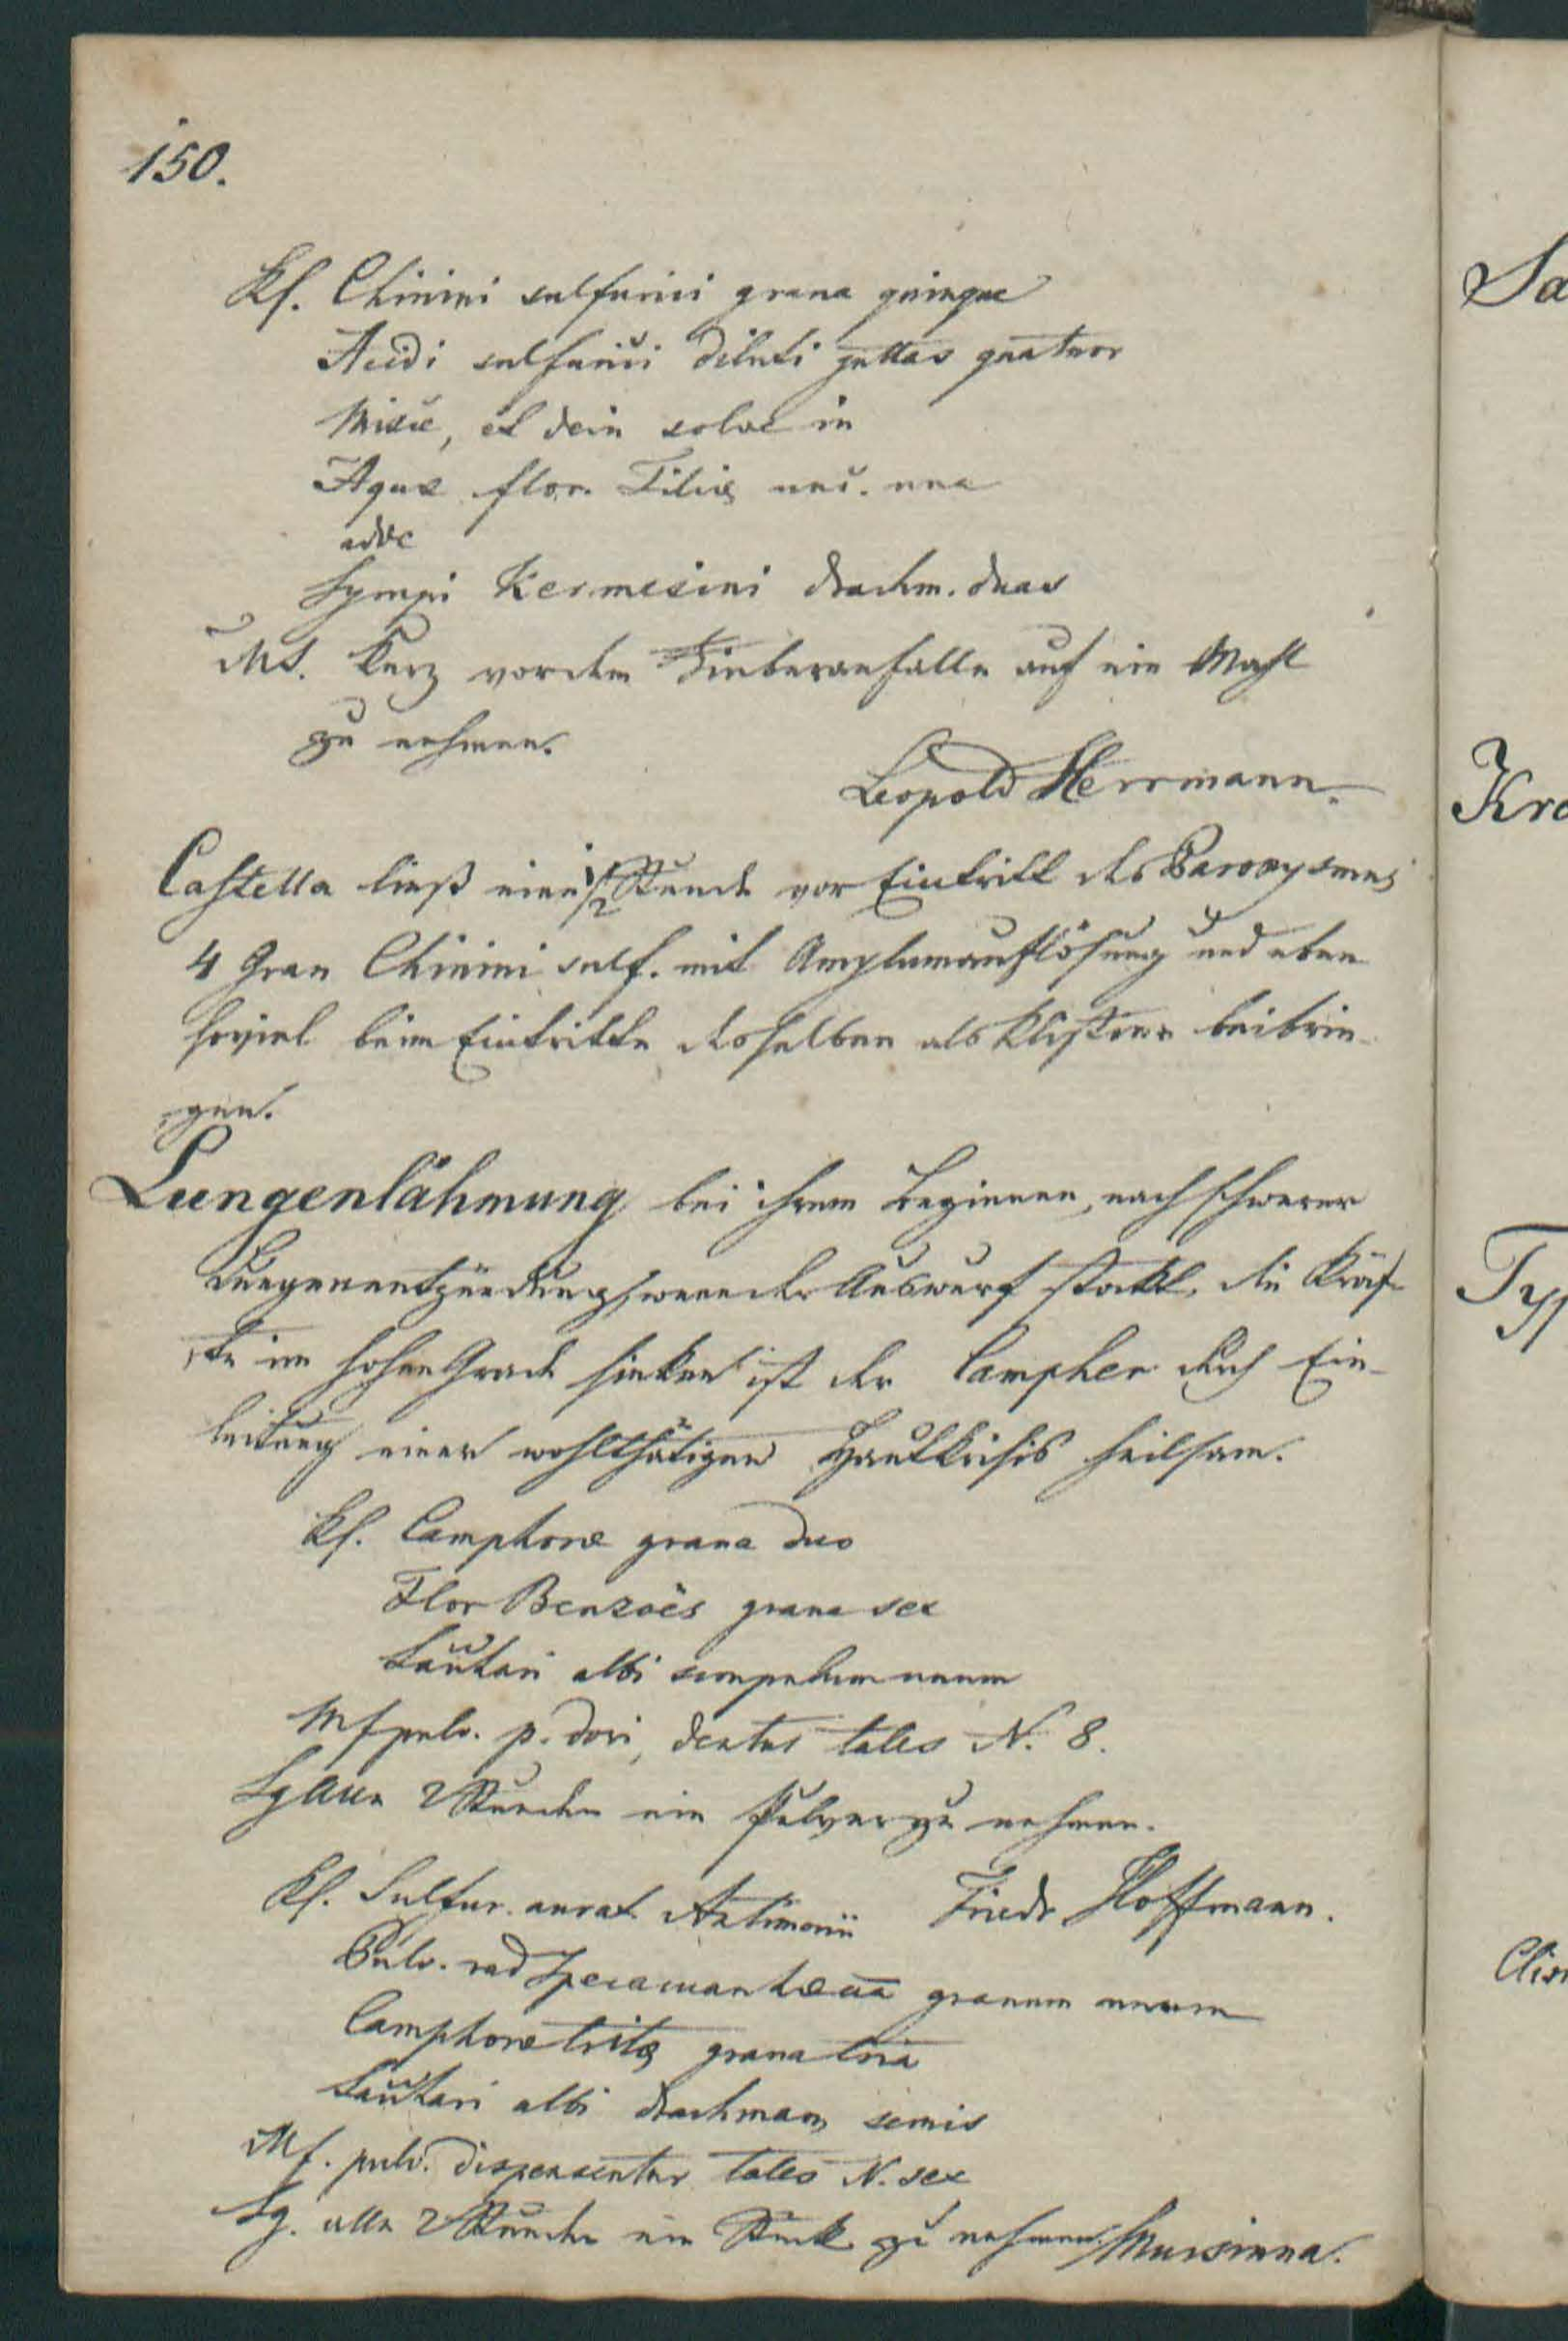 150.
Rf. Chinini sulfurici grana quinque
Acidi sulfurici diluti guttas quatuor
Misce, et dein solve in
Aquæ flor. Tiliæ unc. una
adde
Syrupi Kermesini drachm. duas
MS. Kurz vor dem Fieberanfalle auf ein Mahl
zu nehmen.
Leopold Herrmann.
Castella ließ eine 1/2 Stunde vor Eintritt des Paroxysmus
4 Gran Chinini sulf. mit Amylumauflösung und eben
soviel beim Eintritte desselben als Klistier beibrin-
gen.
Lungenlähmung bei ihrem Beginnen, nach schwerer
Lungenentzündung, wenn der Auswurf stockt, die Kräf-
te im hohen Grade sinken ist der Campher durch Ein-
leitung einer wohlthätigen Hautkrisis heilsam.
Rf. Camphoræ grana duo
Flor Benzoës grana sex
Sacchari albi scrupulum unum
Mf pulv. p. dosi, dentur tales N. 8.
Sg Alle 2 Stunden ein Pulver zu nehmen.
Friedr Hoffmann.
Rf. Sulfur. aurat Antimonii
Pulv. rad Ipecacuanhæ aa granum unum
Camphoræ tritæ grana tria
Sacchari albi drachmam semis
Mf. pulv. dispensentur tales N. sex
Sg. alle 2 Stunden ein Stück zu nehmen. Mursinna.
Sa
Kra
Typ
Clis